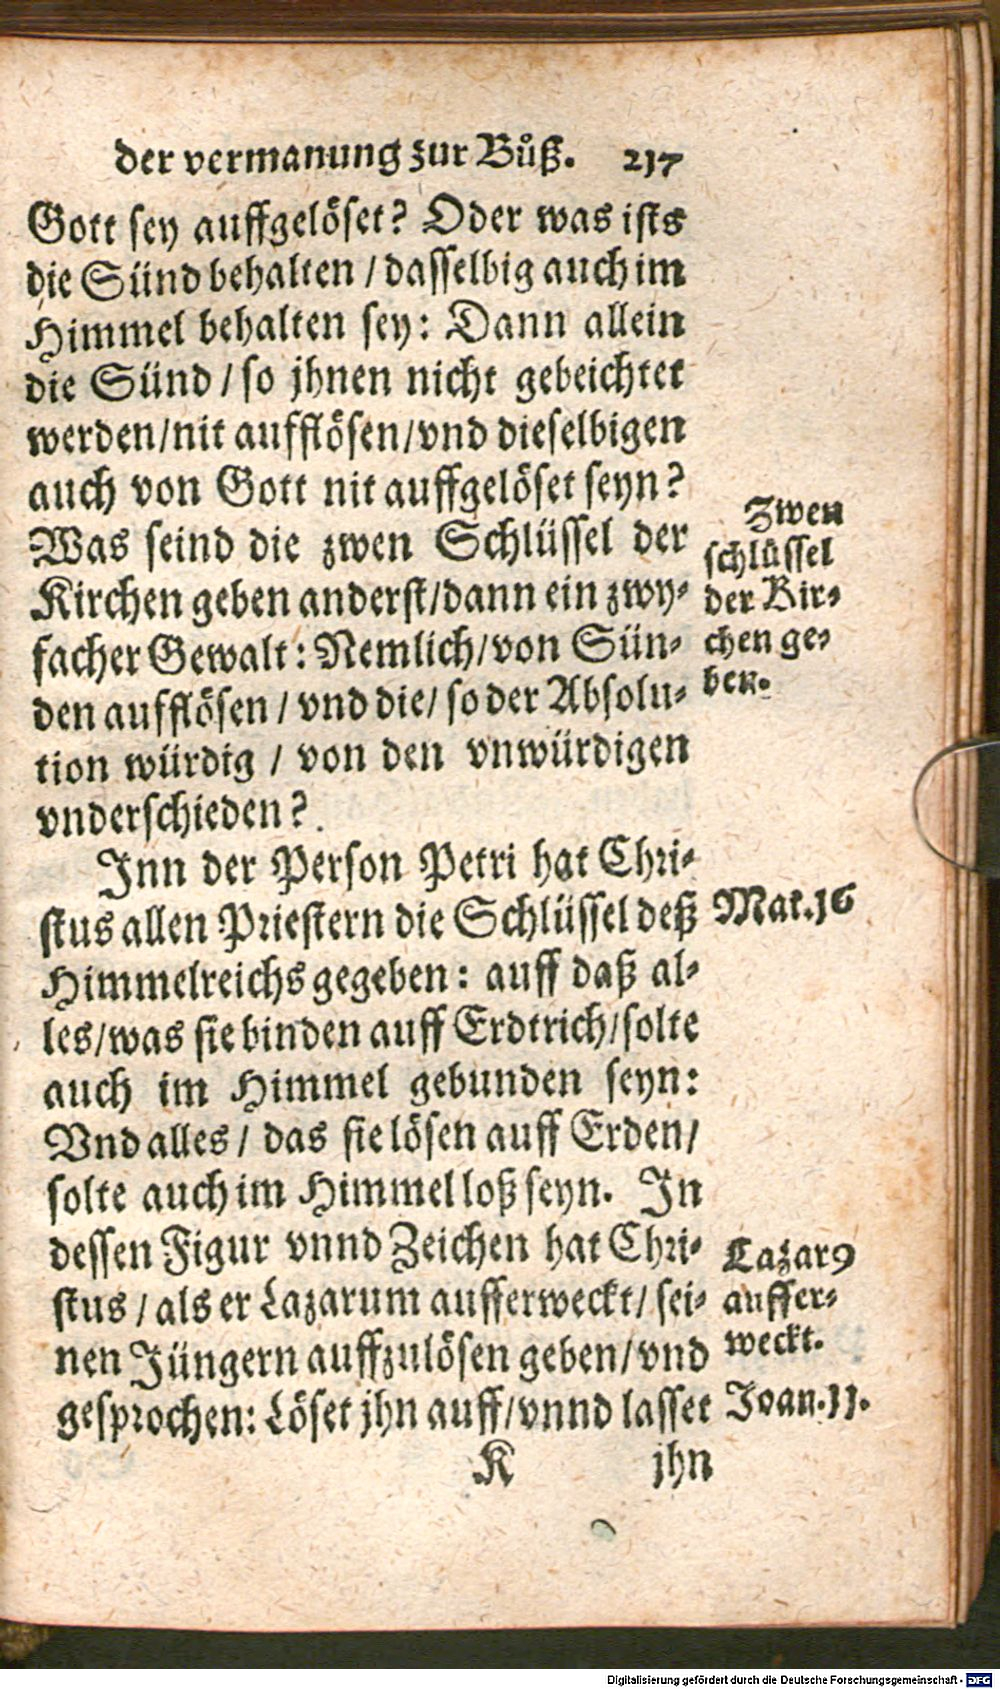 der vermanung zur Bůß. 217
Gott sey auffgelöset? Oder was ists
die Sünd behalten / dasselbig auch im
Himmel behalten sey: Dann allein
die Sünd / so jhnen nicht gebeichtet
werden/nit aufflösen/vnd dieselbigen
auch von Gott nit auffgelöset seyn?
Was seind die zwen Schlüssel der
Kirchen geben anderst/dann ein zwy-
facher Gewalt: Nemlich/von Sün-
den aufflösen / vnd die/ so der Absolu-
tion würdig / von den vnwürdigen
vnderschieden?
Zwen
schlüssel
der Kir-
chen ge-
ben.
Inn der Person Petri hat Chri-
stus allen Priestern die Schlüssel deß
Himmelreichs gegeben: auff daß al-
les/was sie binden auff Erdtrich/solte
auch im Himmel gebunden seyn:
Vnd alles / das sie lösen auff Erden/
solte auch im Himmel loß seyn. In
dessen Figur vnnd Zeichen hat Chri-
stus / als er Lazarum aufferweckt/ sei-
nen Jüngern auffzulösen geben/vnd
gesprochen: Löset jhn auff/vnnd lasset
Mat.16
Lazarꝰ
auffer-
weckt.
Joan.11.
K jhn
Digitalisierung gefördert durch die Deutsche Forschungsgemeinschaft - DFG